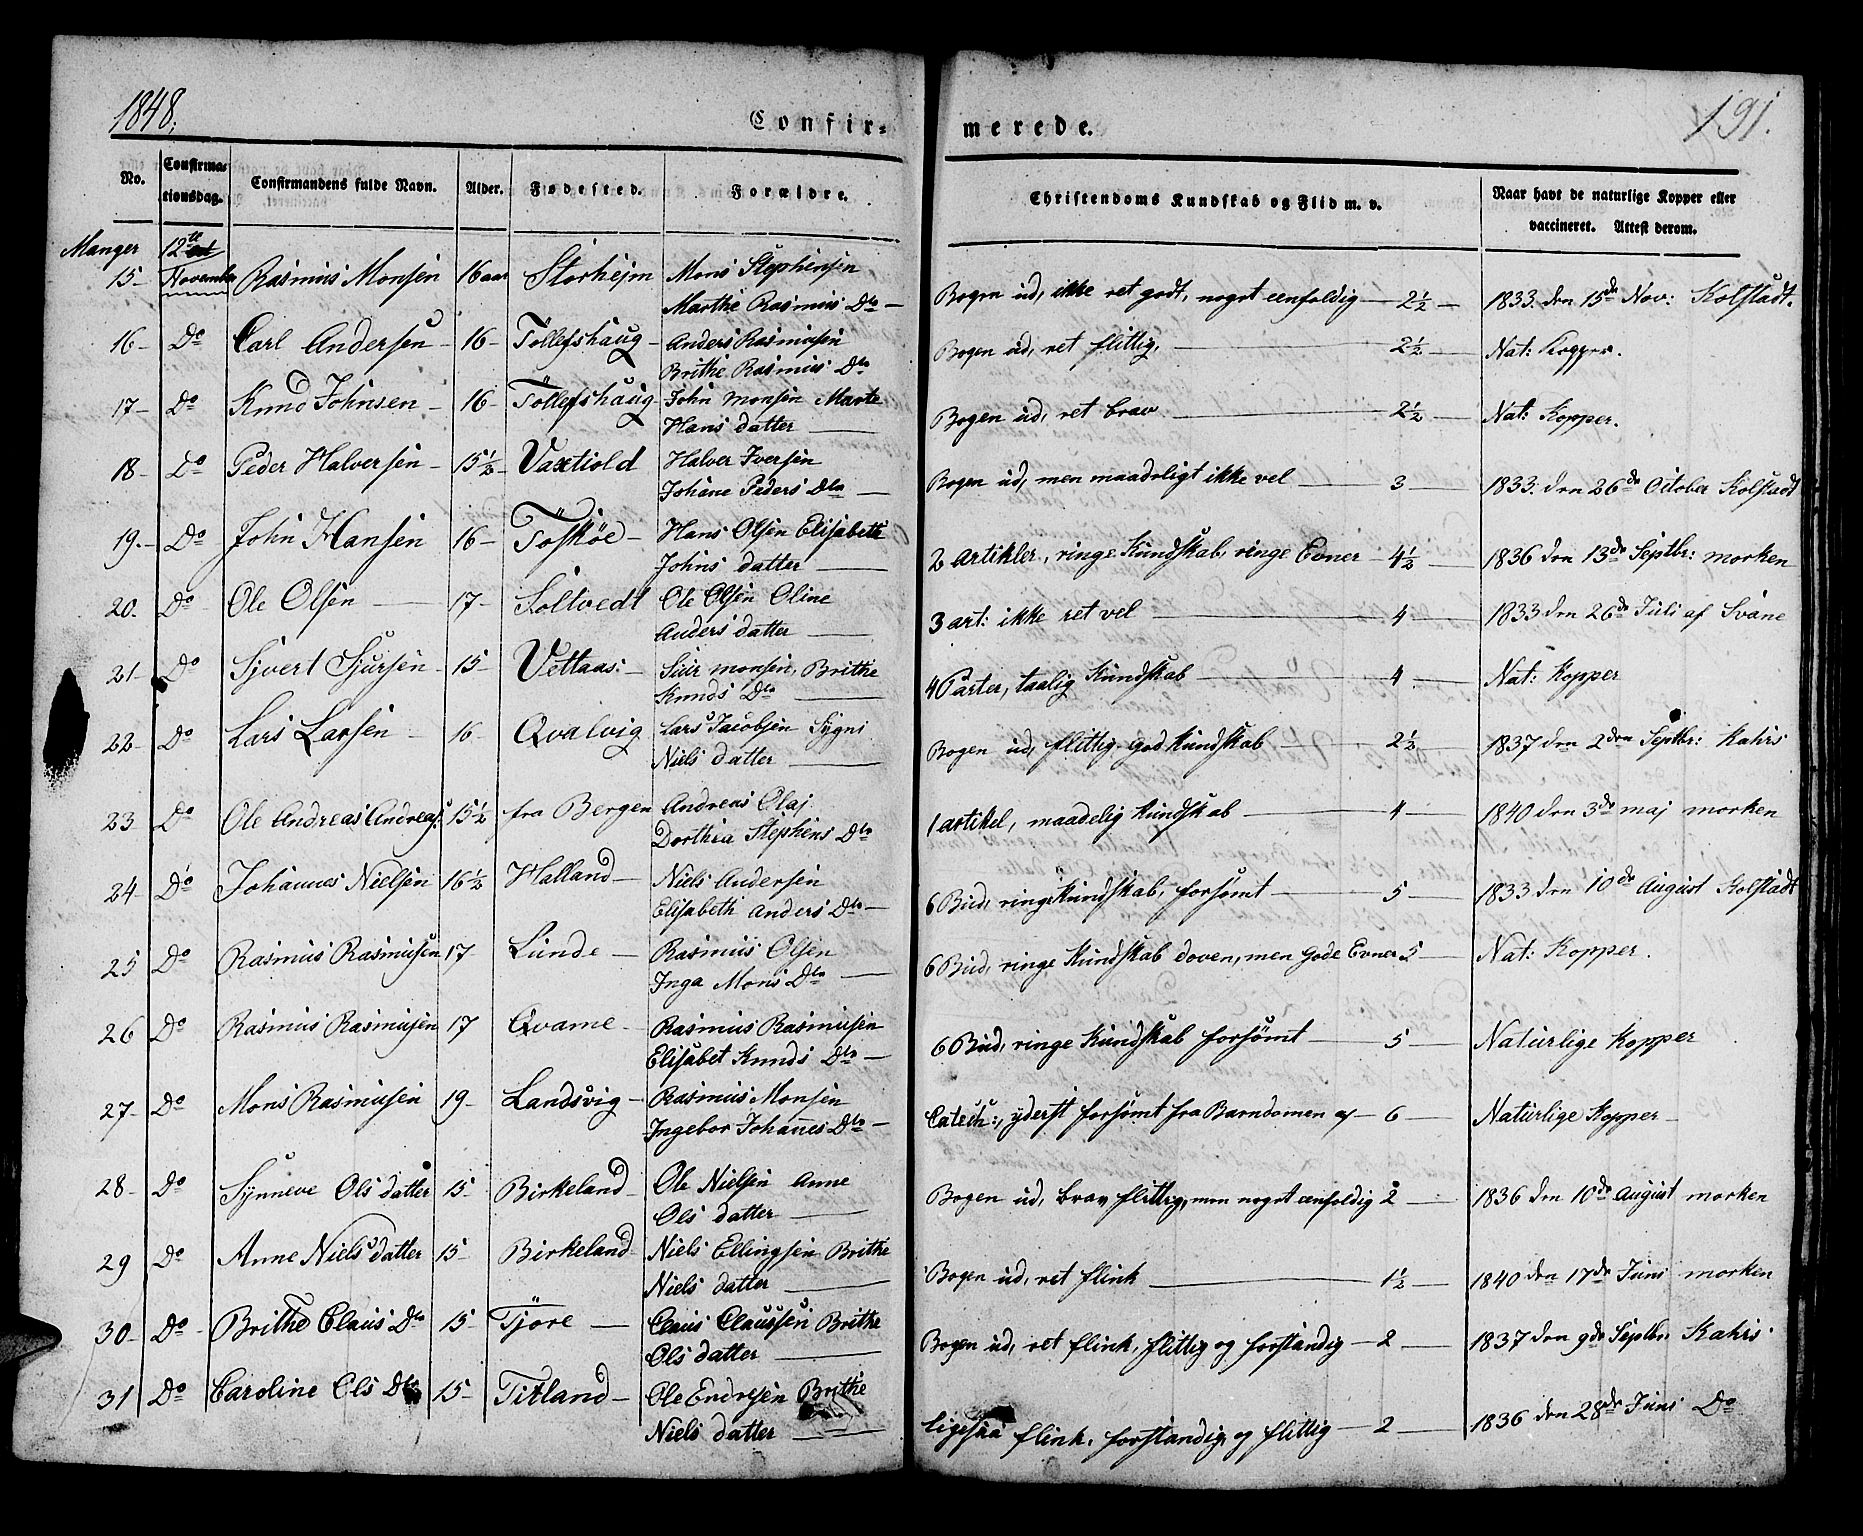 1848.
Confir-
merede.
191.
No.
Confirmationsdag.
Confirmandens fulde Navn.
Alder.
Fødested.
Forældre.
Christendoms Kundskab og Flid m. v.
Naar havt de naturlige Kopper eller vaccineret. Attest derom.
Manger 12te
15- November Rasmus Monsen 16 aar Storhejm Mons Stephensen
Marthe Rasmus Dtr — Bogen ud, ikke ret godt, noget eenfoldig — 2½ — 1833. den 15de Nov: Kolstadt.
16- Do Carl Andersen - 16- Töllefshaug - Anders Rasmusen
Brithe Rasmus Dtr Bogen ud, ret flittig, — 2½ — Nat: Kopper.
17- Do Knud Johnsen - 16- Töllefshaug - John Monsen Marte
Hans datter — Bogen ud, ret brav — 2½ — Nat: Kopper.
18- Do Peder Halversen - 15½- Vaxtiold Halver Iversen
Johane Peders Dtr — Bogen ud, men maadeligt ikke vel — 3 — 1833. den 26de October Kolstadt
19.- Do John Hansen 16- Tösköe - Hans Olsen Elisabeth
Johns datter — 2 Artikler, ringe Kundskab, ringe Evner - 4½ - 1836 den 13de Septbr: morken
20. Do Ole Olsen — 17- Soltvedt Ole Olsen Oline
Anders datter — 3 art: ikke ret vel — 4 — 1833 den 26de Juli af Svane
21- Do Sjvert Sjursen - 15- Vettaas: - Siur monsen, Brithe
Knuds Dtr — 4 Parter, taalig Kundskab — 4 — Nat: Kopper
22- Do Lars Larsen - 16- Qvalvig Lars Jacobsen Sygni
Niels datter — Bogen ud, flittig god Kundskab — 2½ — 1837 den 2den Septbr: Kahrs
23 Do Ole Andreas Andreas: 15½ fra Bergen Andreas Olaj
Dorthea Stephens Dtr 1 artikel, maadelig Kundskab — 4 — 1840 den 3de maj morken
24 Do Johannes Nielsen 16½ Halland - Niels Andersen
Elisabeth Anders Dtr - 6 Bud, ringe Kundskab, forsömt — 5 — 1833 den 10de August Kolstadt
25 Do Rasmus Rasmusen 17 Lunde - Rasmus Olsen
Inga Mons Dtr — 6 Bud, ringe Kundskab doven, men gode Evner 5 — Nat: Kopper.
26 Do Rasmus Rasmusen 17 Qvame - Rasmus Rasmusen
Elisabet Knuds Dtr - 6 Bud, ringe Kundskab forsömt — 5 — Naturlige Kopper
27- Do Mons Rasmusen 19- Landsvig - Rasmus Monsen
Ingebor Johanes Dtr - Catech:, yderst forsömt fra Barndomen af - 6 — Naturlige Kopper -
28- Do Synneve Ols datter 15- Birkeland - Ole Nielsen Anne
Ols datter — Bogen ud, brav flittig, men noget eenfoldig 2 — 1836 den 10de August morken
29 Do Anne Niels datter 15- Birkeland - Niels Ellingsen Brithe
Niels datter — Bogen ud, ret flink — 1½ — 1840 den 17de Juni morken
30- Do - Brithe Claus Dtr 15 Tjöre — Claus Claussen Brithe
Ols datter — Bogen ud, ret flink, flittig og forstandig - 2 — 1837 den 9de Septbr. Kahrs
31 Do Caroline Ols Dtr 15- Titland - Ole Endresen Brithe
Niels datter — ligesaa flink, forstandig, og flittig — 2 — 1836 den 28de Juni Do